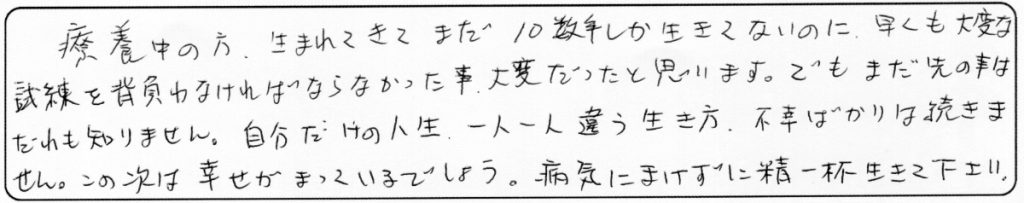 療養中の方、生まれてきてまだ10数年しか生きてないのに、早くも大変な
試練を背負わなければならなかった事、大変だったと思います。でもまだ先の事は
だれも知りません。自分だけの人生、一人一人違う生き方、不幸ばかりは続きま
せん。この次は幸せがまっているでしょう。病気にまけずに精一杯生きて下さい。